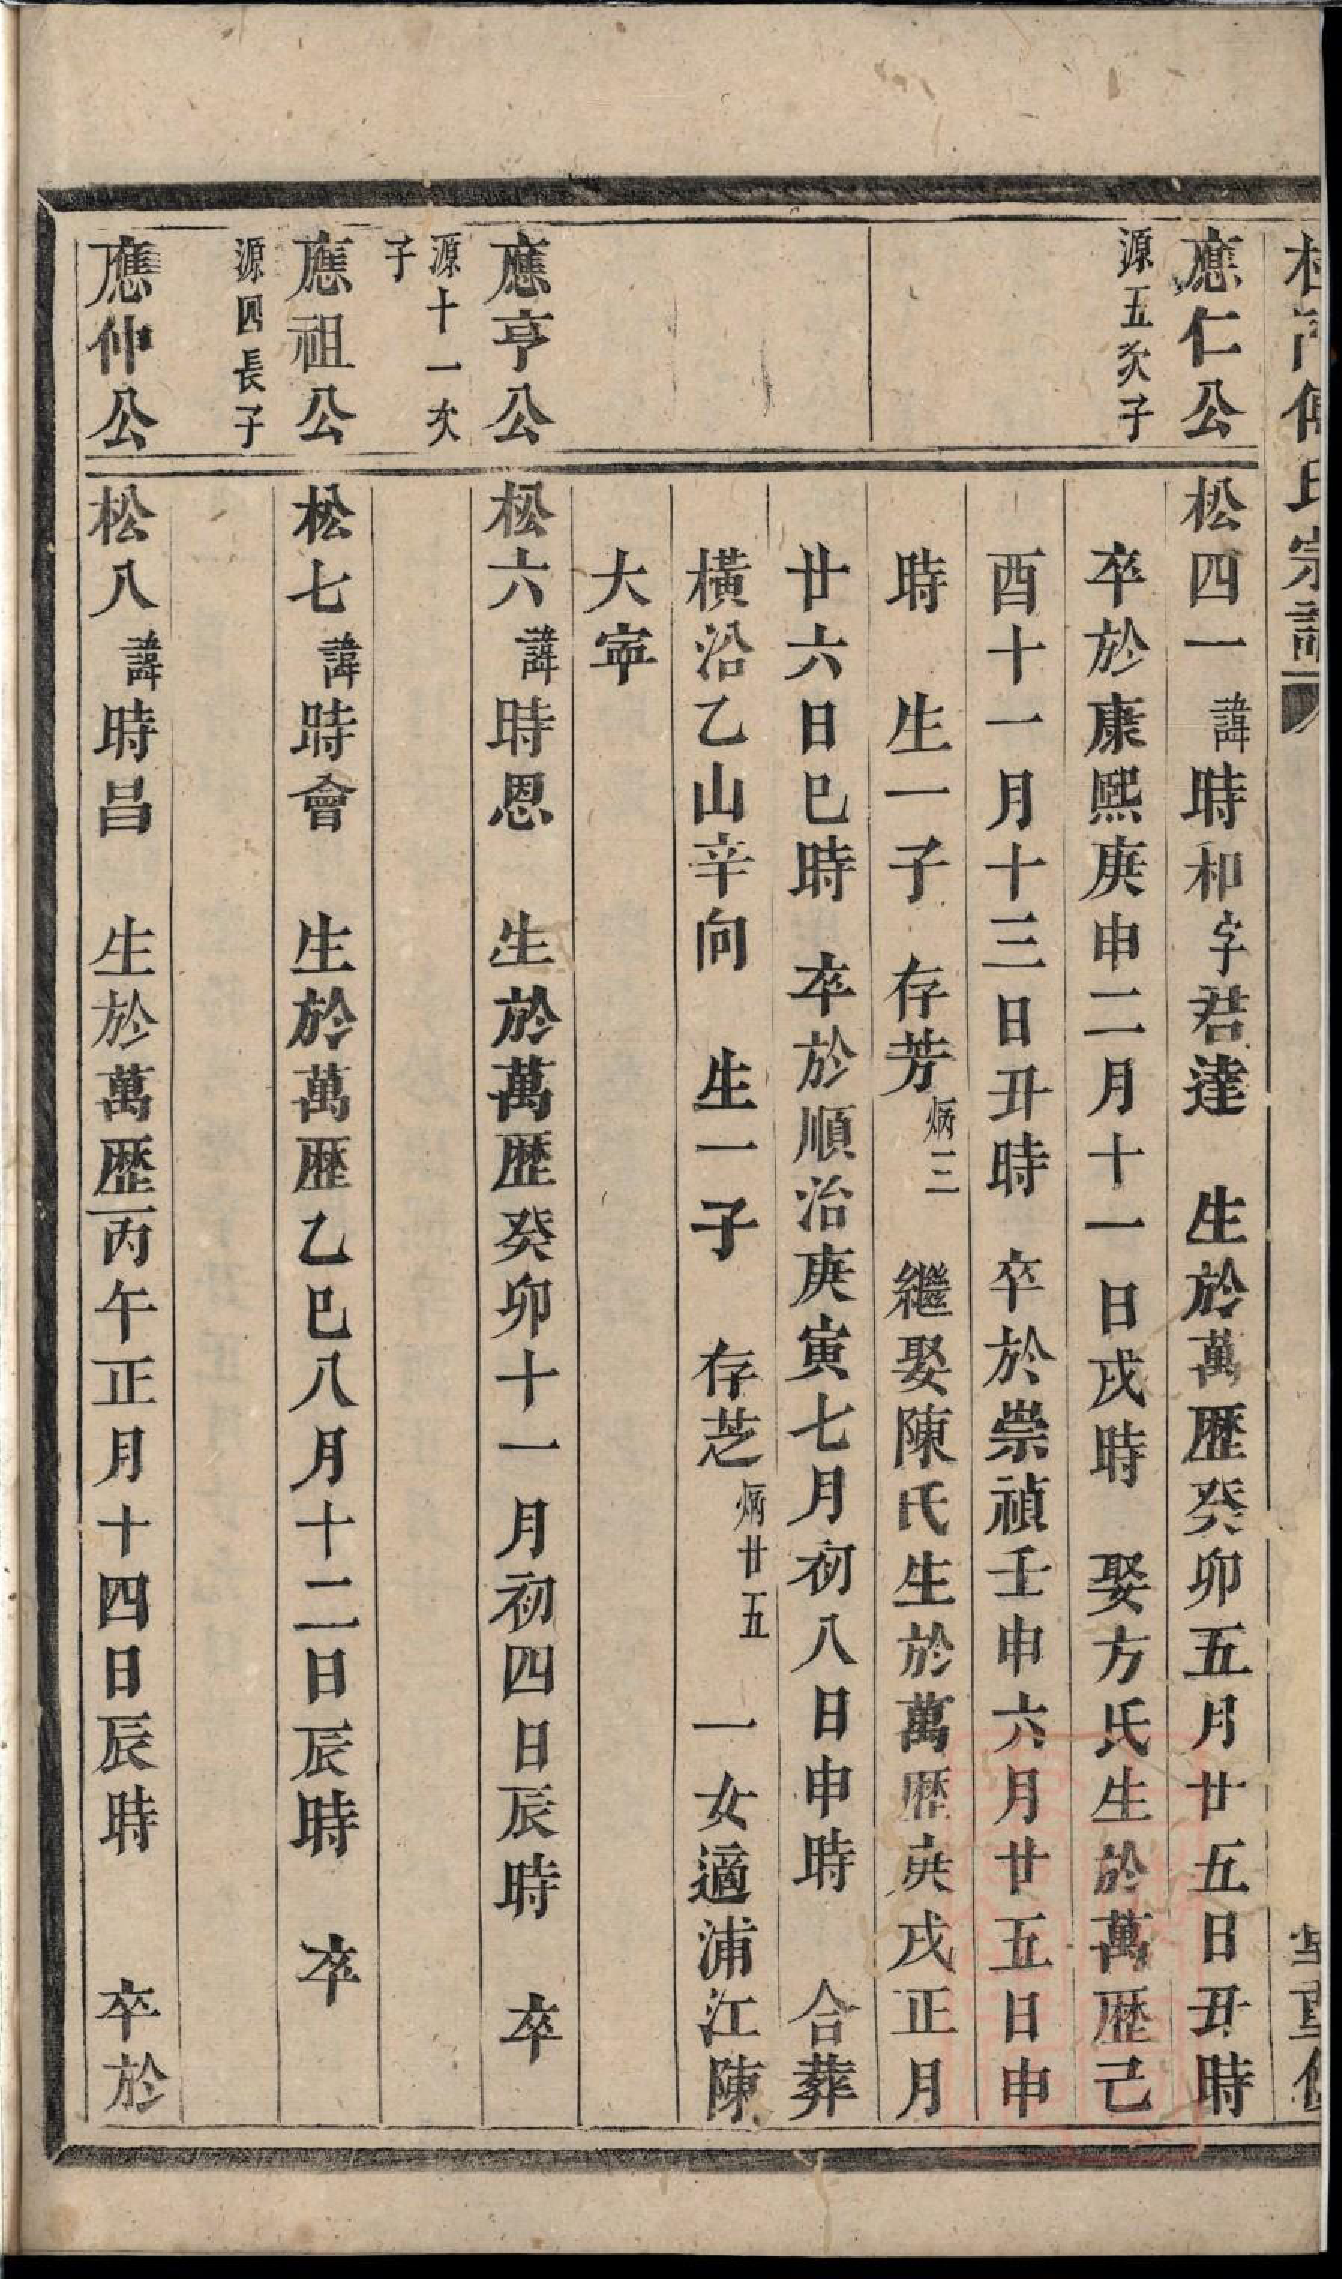 氏宗譜
應仁公
源五次子
松四一諱時和字君達 生於萬歴癸卯五月廿五日丑時
卒於康熙庚申二月十一日戌時 娶方氏生於萬歴己
酉十一月十三日丑時 卒於崇禎壬申六月廿五日申
時 生一子 存芳炳三 繼娶陳氏生於萬歴庚戌正月
廿六日巳時 卒於順治庚寅七月初八日申時 合葬
橫沿乙山辛向 生一子 存芝炳廿五 一女適浦江陳
大寧
應亨公
源十一次
子
松六諱時恩 生於萬歴癸卯十一月初四日辰時 卒
應祖公
源四長子
松七諱時會 生於萬歴乙巳八月十二日辰時 卒
應仲公
松八諱時昌 生於萬歴丙午正月十四日辰時 卒於